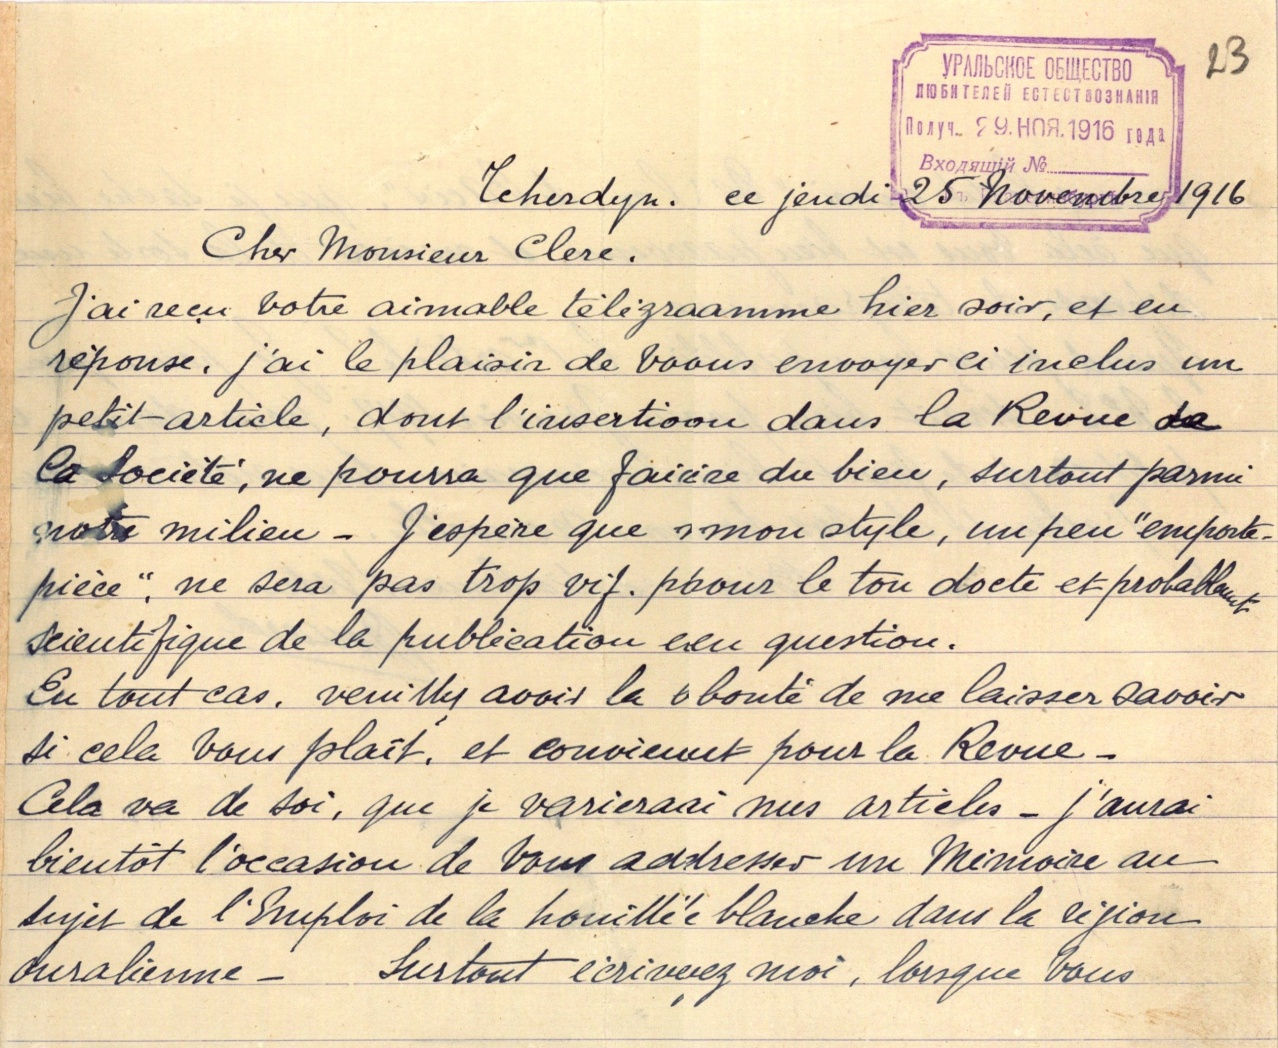 23
УРАЛЬСКОЕ ОБЩЕСТВО
ЛЮБИТЕЛЕЙ ЕСТЕСТВОЗНАНІЯ
Получ. 29. НОЯ. 1916 года
Входящій №
Tcherdyn. ce jeudi 25 Novembre 1916
Cher Monsieur Clerc.
J'ai reçu votre aimable télégraamme hier soir, et en
réponse. j'ai le plaisir de voous envoyer ci inclus un
petit-article, dont l'insertioon dans la Revue de
la Société, ne pourra que faiire du bien, surtout parmi
notre milieu – J'espère que mon style, un peu "emporte-
pièce", ne sera pas trop vif. pour le ton docte et probablement
scientifique de la publication en question.
En tout cas. veuillez avoir la bonté de me laisser savoir
si cela vous plaît. et convient pour la Revue –
Cela va de soi, que je varieraai mes articles – j'aurai
bientôt l'occasion de vous addresser un Mémoire au
sujet de l'Emploi de la houille blanche dans la région
ouralienne – Surtout écrivez moi, lorsque vous